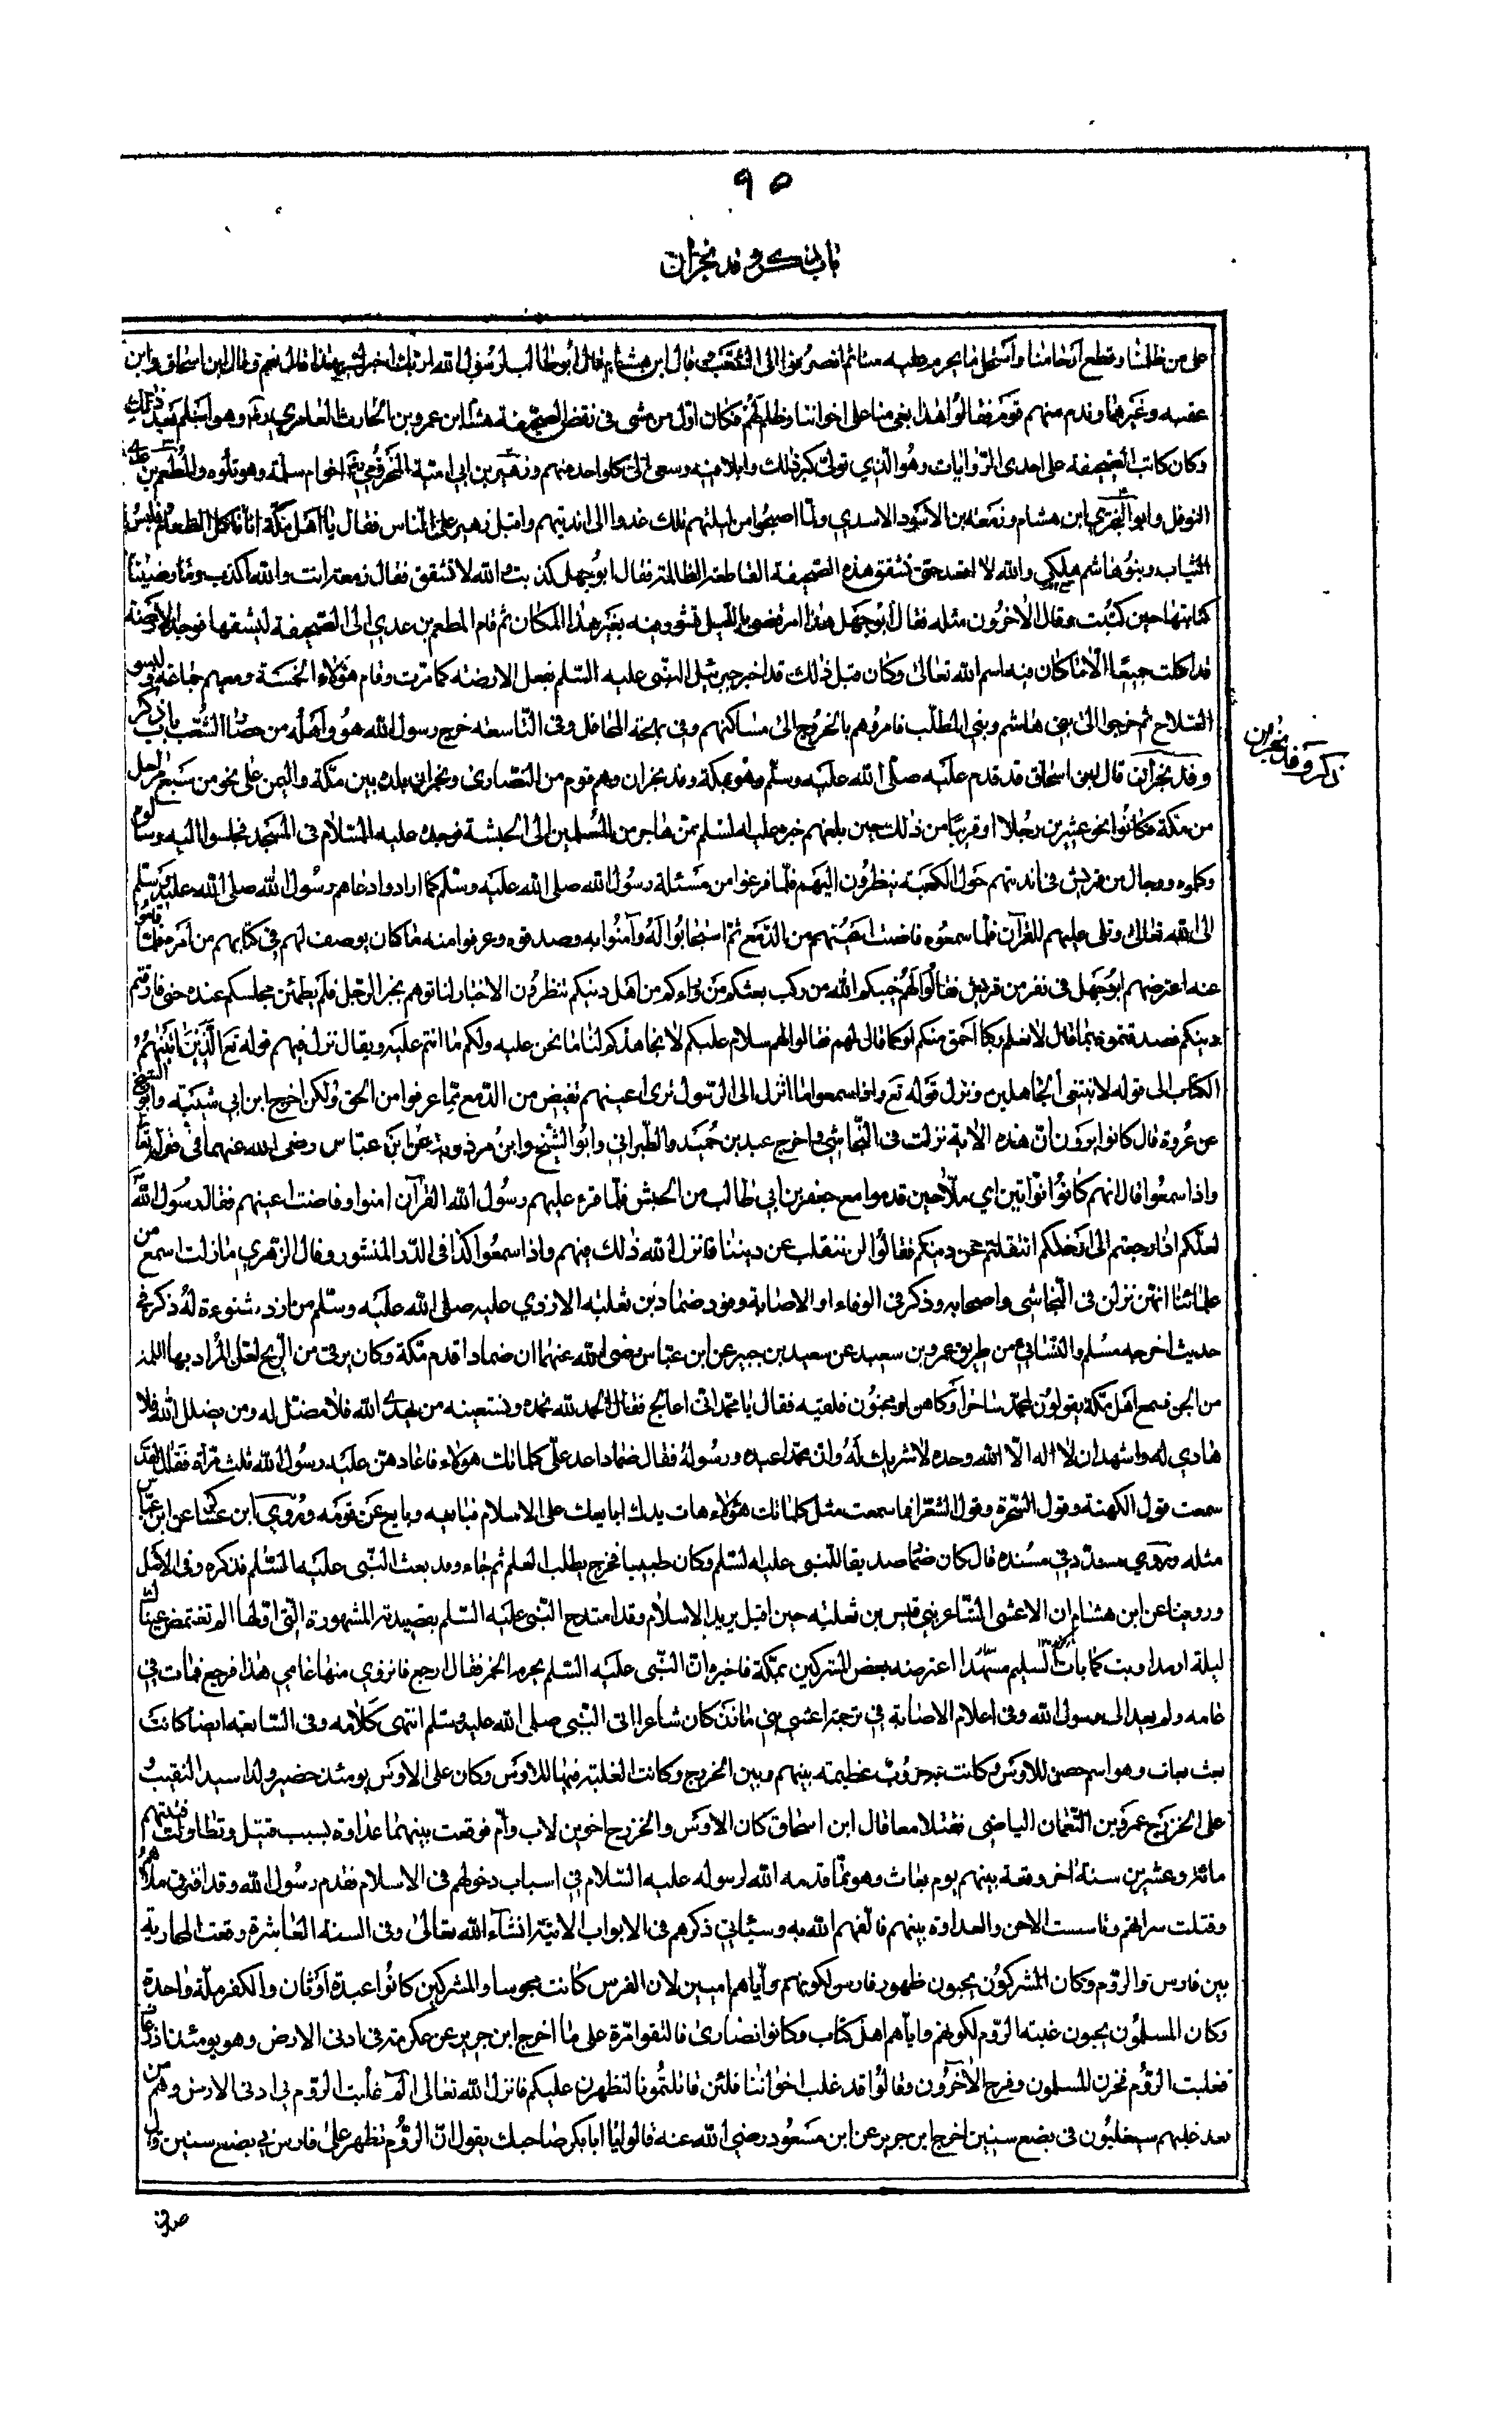 ٩٥
باب ذكر وفد نجران
على من ظلمنا وقطع ارحامنا واستحل ما يحرم عليه منا ثم انصرفوا الى الشعب قال ابن هشام قال أبو طالب لرسول الله اربك اخبرك بهذا قال نعم وقال ابن اسحاق وابن
عقبه وغيرهما وندم منهم قوم فقالوا هذا بغي منا على اخواننا وظلم لهم فكان اول من مشى في نقض الصحيفة هشام ابن عمرو بن الحارث العامري وهو اسلم بعد ذلك
وكان كاتب الصحيفة على احدى الروايات وهو الذي تولى كبر ذلك وابلا منه وسعى الى كل واحد منهم وزهير بن ابي امية المخزومي اخو ام سلمة وهو تلوه والمطعم بن عدي
النوفل وابو البختري ابن هشام وزمعه بن الاسود الاسدي ولما اصبحوا من ليلتهم تلك غدوا الى انديتهم واقبل زهير على الناس فقال يا اهل مكة انا ناكل الطعام ونلبس
الثياب وبنو هاشم هلكى والله لا اقعد حتى تشقق هذه الصحيفة القاطعة الظالمة فقال ابو جهل كذبت والله لا تشقق فقال زمعة انت والله اكذب وما رضينا
كتابتها حين كتبت وقال الآخرون مثله فقال ابو جهل هذا امر قضي بالليل تشوور فيه بغير هذا المكان ثم قام المطعم بن عدي الى الصحيفة ليشقها فوجد الارضة
قد اكلت جميعا الا ما كان فيه اسم الله تعالى وكان قبل ذلك قد اخبر جبرئيل النبي عليه السلم بفعل الارضة كما مرت وقام هؤلاء الخمسة ومعهم جماعة ولبسو
السلاح ثم خرجوا الى بني هاشم وبني المطلب فامروهم بالخروج الى مساكنهم وفي بهجة المحافل وفي التاسعة خرج رسول الله هو وأهله من حصار الشعب باب ذكر
وفد نجران قال ابن اسحاق قد قدم عليه صلى الله عليه وسلم وهو بمكة وفد نجران وهم قوم من النصارى ونجران بلدة بين مكة واليمن على نحو من سبع مراحل
من مكة فكانوا نحو عشرين رجلا او قريبا من ذلك حين بلغهم خبره عليه السلم ممن هاجر من المسلمين الى الحبشة فوجدوه عليه السلام في المسجد فجلسوا اليه وسألوه
وكلموه ورجال من قريش في انديتهم حول الكعبة ينظرون اليهم فلما فرغوا من مسئلة رسول الله صلى الله عليه وسلم كما ارادوا دعاهم رسول الله صلى الله عليه وسلم
الى الله تعالى وتلى عليهم القرآن فلما سمعوه فاضت اعينهم من الدمع ثم استجابوا له وآمنوا به وصدقوه وعرفوا منه ما كان يوصف لهم في كتابهم من امره فلما قاموا
عنه اعترضهم ابو جهل في نفر من قريش فقالوا لهم خيبكم الله من ركب بعثكم من وراءكم من اهل دينكم تنظرون الاخبار لتاتوهم بخبر الرجل فلم يطمئن مجلسكم عنده حتى فارقتم
دينكم فصدقتموه فيما قال لا نعلم ركبا احمق منكم او كما قال لهم فقالوا لهم سلام عليكم لا نجاهلكم لنا ما نحن عليه ولكم ما انتم عليه ويقال نزل فيهم قوله تع الذين اتينهم
الكتاب الى قوله لا نبتغى الجاهلين ونزل قوله تع واذا سمعوا ما انزل الى الرسول ترى اعينهم تفيض من الدمع مما عرفوا من الحق ولكن اخرج ابن ابي شيبة وابو الشيخ
عن عروة قال كانوا يرون ان هذه الاية نزلت في النجاشي واخرج عبد بن حميد والطبراني وابو الشيخ وابن مردويه عن ابن عباس رضى الله عنهما في قوله تعا
واذا سمعوا قال انهم كانوا نواتين اي ملاحين قدموا مع جعفر بن ابي طالب من الحبش فلما قرء عليهم رسول الله القرآن امنوا وفاضت اعينهم فقال رسول الله
لعلكم اذا رجعتم الى ارضكم انتقلتم عن دينكم فقالوا لن ننقلب عن ديننا فانزل الله ذلك فيهم واذا سمعوا كذا في الدر المنثور وقال الزهري ما زلت اسمع من
علمائنا انهن نزلن في النجاشي واصحابه وذكر في الوفاء او الاصابة وفود ضماد بن ثعلبة الازدي عليه صلى الله عليه وسلم من ازد شنوءة له ذكر في
حديث اخرجه مسلم والنسائي من طريق عمرو بن سعيد عن سعيد بن جبير عن ابن عباس رضى الله عنهما ان ضمادا قدم مكة وكان يرقى من الريح لعل المراد بها اللمة
من الجن فسمع اهل مكة يقولون لمحمد ساحرا وكاهن او مجنون فلقيه فقال يا محمد انى اعالج فقال الحمد لله نحمده ونستعينه من يهدى الله فلا مضل له ومن يضلل الله فلا
هادي له واشهد ان لا اله الا الله وحده لا شريك له وان محمدا عبده ورسوله فقال ضماد اعد علي كلماتك هؤلاء فاعادهن عليه رسول الله ثلث مرآة فقال لقد
سمعت قول الكهنة وقول السحرة وقول الشعرا فما سمعت مثل كلماتك هؤلاء هات يدك ابايعك على الاسلام فبايعه وبايع عن قومه وروي ابن عن ابن عباس
مثله وروي مسدد في مسنده قال كان ضماد صديقا للنبى عليه السلم وكان طبيبا فخرج يطلب العلم ثم جاء وقد بعث النبى عليه السلم فذكره وفى الاكمل
وروينا عن ابن هشام ان الاعشى الشاعر بني قيس بن ثعلبة حين اقبل يريد الاسلام وقد امتدح النبى عليه السلم بقصيدته المشهورة التى اولها الم تغتمض عيناك
ليلة ارمدا وبت كما بات السليم مسهدا اعترضه بعض المشركين بمكة فاخبره ان النبى عليه السلم يحرم الخمر فقال ارجع فاتروي منها عامي هذا فرجع فمات في
عامه ولم يعد الى رسول الله وفى اعلام الاصابة في ترجمة اعشى بني مازن كان شاعرا اتى النبى صلى الله عليه وسلم انتهى كلامه وفى السابعة ايضا كانت
بعث بعاث وهو اسم حصن للاوس وكانت به حروب عظيمة بينهم وبين الخزرج وكانت الغلبة فيها للاوس وكان على الاوس يومئذ حضير والد اسيد النقيب و
على الخزرج عمرو بن النعمان البياضي فقتلا معا قال ابن اسحاق كان الاوس والخزرج اخوين لاب وأم فوقعت بينهما عداوة بسبب قتيل وتطاولت فتنتهم
مائة وعشرين سنة اخر وقعة بينهم يوم بعاث وهو مما قدمه الله لرسوله عليه السلام في اسباب دخولهم فى الاسلام فقدم رسول الله وقد افترق ملاؤهم
وقتلت سراتهم وتاسست الاحن والعداوة بينهم فالفهم الله به وسيأتي ذكرهم فى الابواب الاتية انشآء الله تعالى وفى السنة العاشرة وقعت المحاربة
بين فارس والروم وكان المشركون يحبون ظهور فارس لكونهم واياهم اميين لان الفرس كانت مجوسا والمشركين كانوا عبدة أوثان والكفر ملة واحدة
وكان المسلمون يحبون غلبة الروم لكونهم واياهم اهل كتاب وكانوا نصارى فالتقوا مرة على ما اخرج ابن جرير عن عكرمة في ادنى الارض وهو يومئذ اذرعات
فغلبت الروم فحزن المسلمون وفرح الآخرون وقالوا قد غلب اخواننا فلئن قاتلتمونا لنظهرن عليكم فانزل الله تعالى الم غلبت الروم في ادنى الارض وهم من
بعد غلبهم سيغلبون فى بضع سنين اخرج ابن جرير عن ابن مسعود رضي الله عنه قالوا يا ابا بكر صاحبك يقول ان الروم تظهر على فارس في بضع سنين
ذكر وفد نجران
صدق